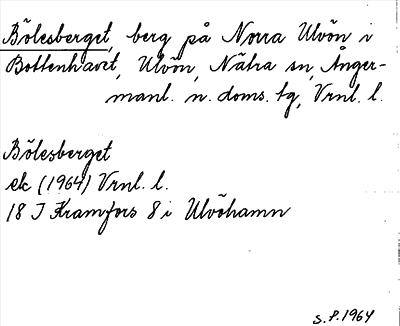 Bölesberget, berg på Norra Ulvön i
Bottenhavet, Ulvön, Nätra sn, Ånger-
manl. n. doms. tg, Vrnl. l.
Bölesberget
ek (1964) Vrnl. l.
18 I Kramfors 8 i Ulvöhamn
S.P. 1964